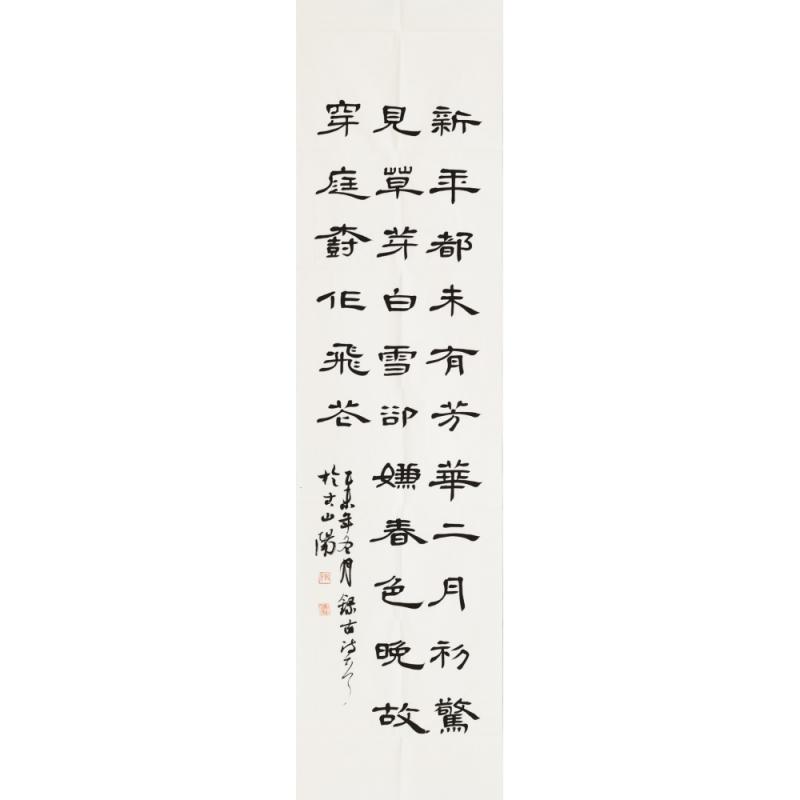 新年都未有芳華二月初驚
見草芽白雪卻嫌春色晚故
穿庭樹作飛花
乙未年冬月錄古詩一首
於古山陽